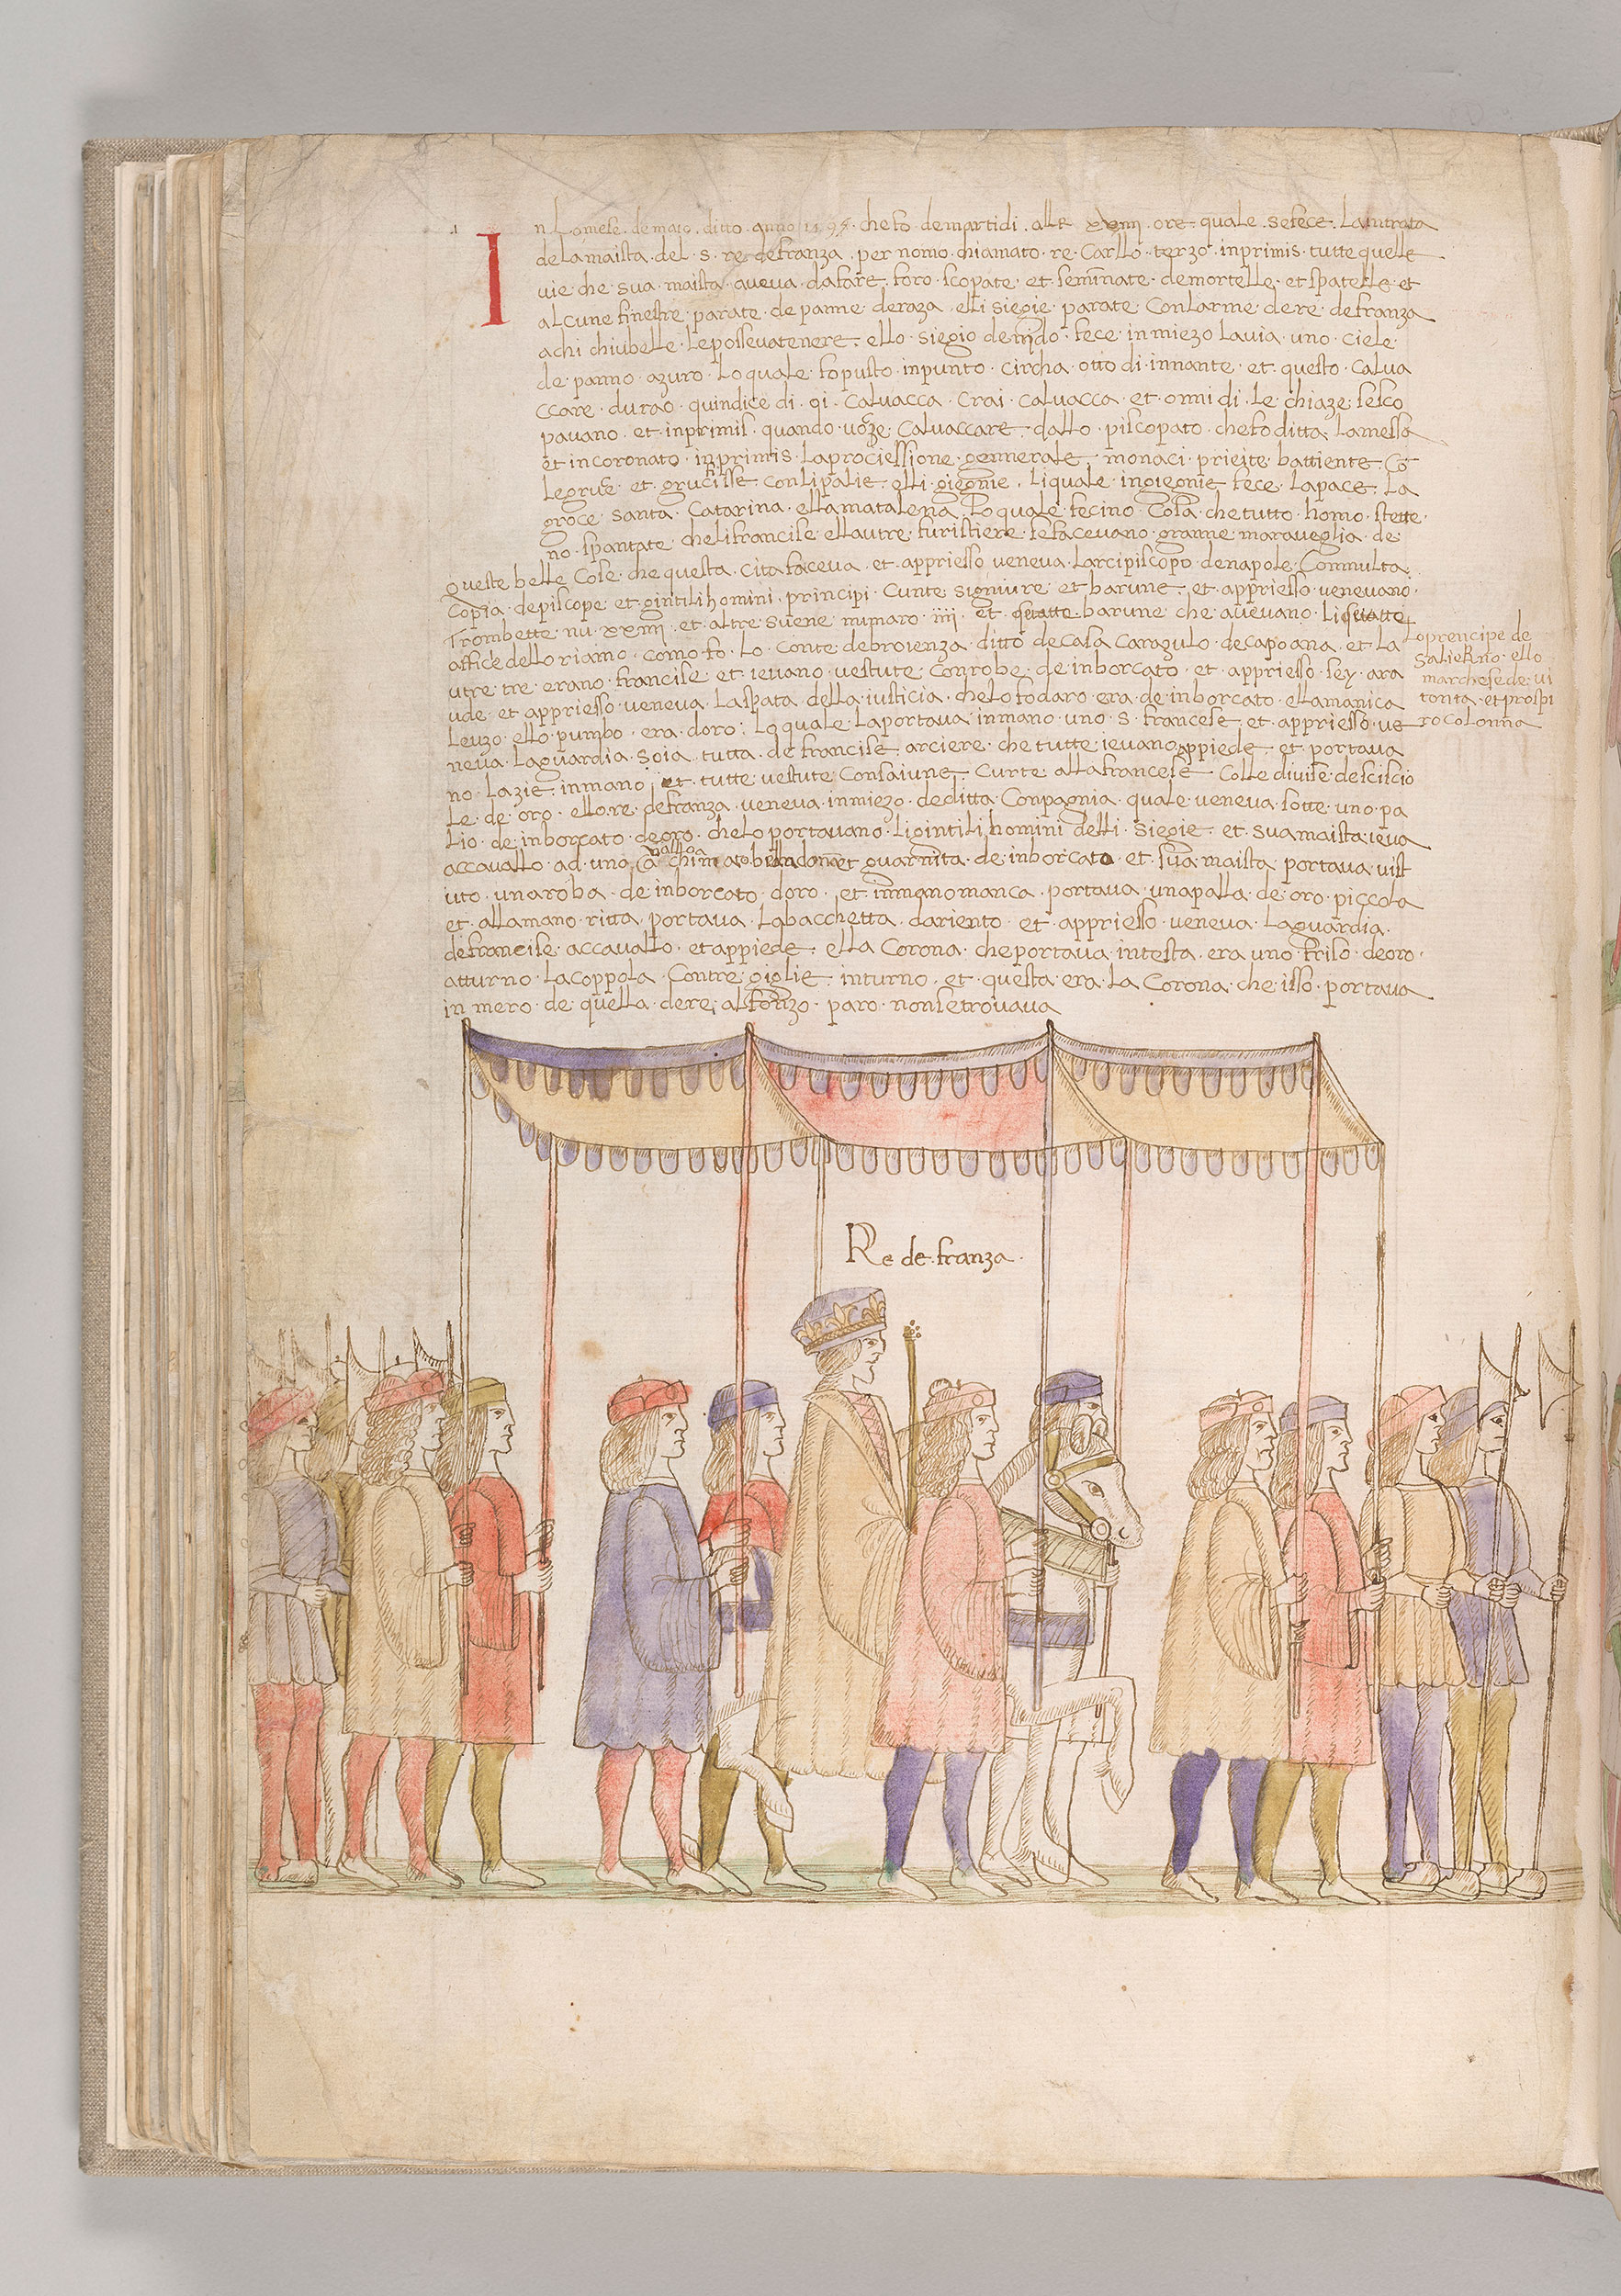 In lo mese de maio ditto anno 1495 che fo de martidi alle xxiiii ore quale se fece la intrata
de la maista del s. re de franza per nomo chiamato re Carllo terzo inprimis tutte quelle
vie che sua maista aveva da fare foro scopate et seminnate de mortelle et spatelle et
alcune finestre parate de panne de raza elli siegie parate con larme de re de franza
a chi chiu belle le posseva tenere ello siegio de nido fece in miezo la via uno ciele
de panno azuro lo quale fo pusto in punto circha otto di innante et questo calva
ccare durao quindice di oi calvacca crai calvacca et onni di le chiaze se sco
pavano et inprimis quando voze calvaccare dallo piscopato che fo ditta la messa
et incoronato inprimis la prociessione gennerale monaci prieite battiente co
le gruce et grucifisse con li palie elli giegnie li quale ingiegnie fece la pace la
groce santa Catarina ella matalena lo quale fecino cosa che tutto homo stette
no spantate che li francise ellautre furistiere se facevano granne maraveglia de
queste belle cose che questa cita faceva et appriesso veneva larcipiscopo de napole con multa
copia de piscope et gintili homini principi cunte signiure et barune et appriesso venevano
trombette nu xxiiii et altre suene numaro iiii et quatto barune che avevano li quatto
affice dello riamo como fo lo conte de broienza ditto de casa caragulo de capoana et la
utre tre erano francise et ievano vestute con robe de inborcato et appriesso sey ara
ude et appriesso veneva la spata della iusticia che lo fodaro era de inborcato ella manica
leuzo ello pumbo era doro lo quale la portava in mano uno s. francese et appriesso ve
neva la guardia soia tutta de francise arciere che tutte ievano appiede et portava
no lazie in mano et tutte vestute con saiune curte alla francese colle divise de sciscio
le de oro ello re de franza veneva in miezo de ditta conpagnia quale veneva sotte uno pa
lio de inborcato de oro che lo portavano li gintili homini delli siegie et sua maista ieva
accavallo ad uno cavallo chimato bella donna et guarnita de inborcato et sua maista portava vist
uto una roba de inborcato doro et in mano manca portava una palla de oro piccola
et alla mano ritta portava la bacchetta dariento et appriesso veneva la guardia
de francise accavallo et appiede ella corona che portava in testa era uno friso de oro
atturno la coppola con tre giglie inturno et questa era la corona che isso portava
in mero de quella de re alfonzo paro non se trovava
lo prencipe de
salierno ello
marchese de vi
tonta et prospi
ro colonna
Re de franza